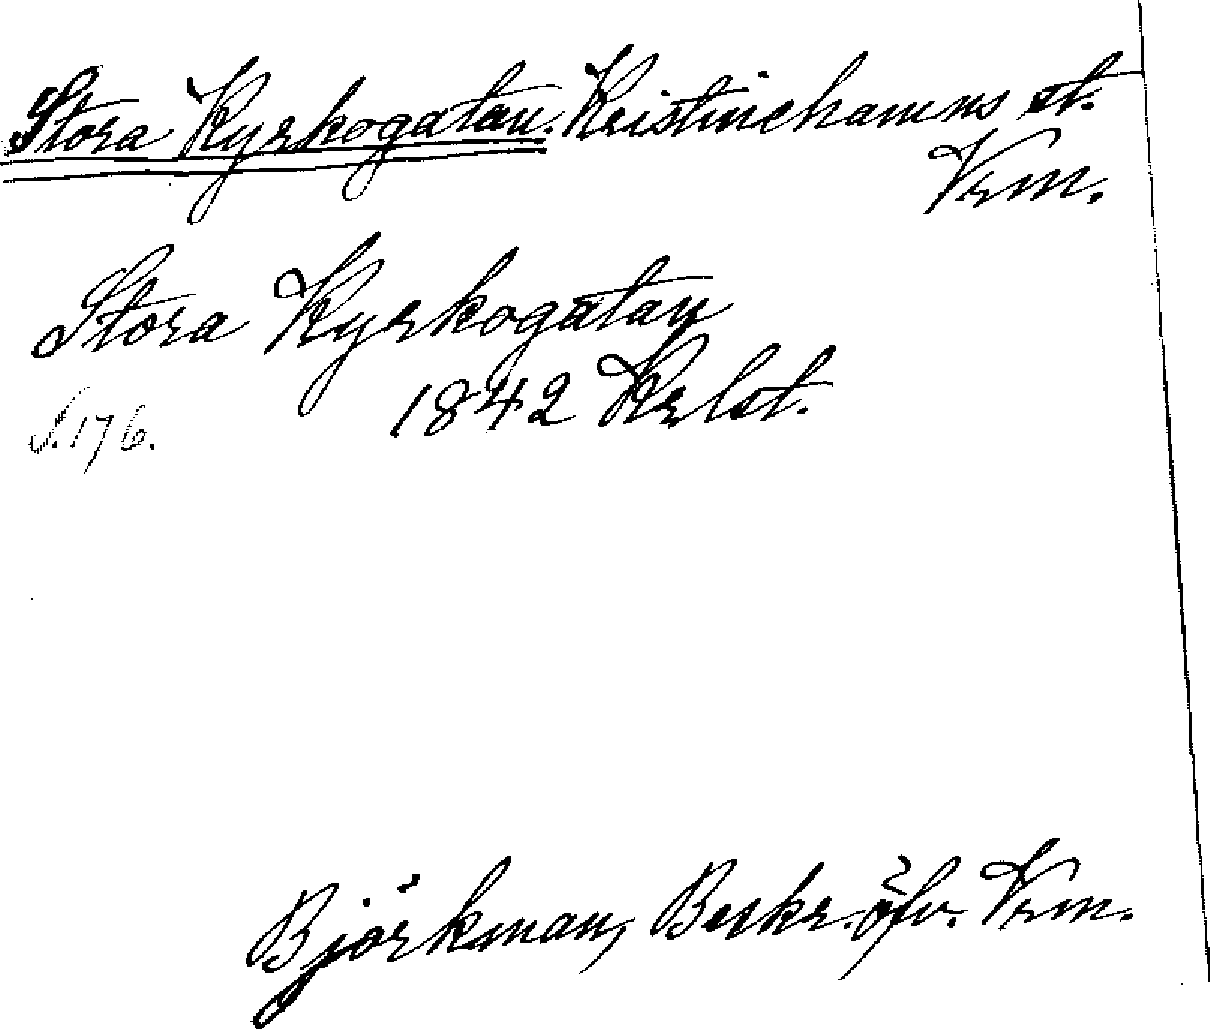 Stora Kyrkogatan. Kristinehamns st.
Vrm.
Stora Kyrkogatan
1842 Krlst.
S. 176.
Björkman, Beskr. öfv. Vrm.